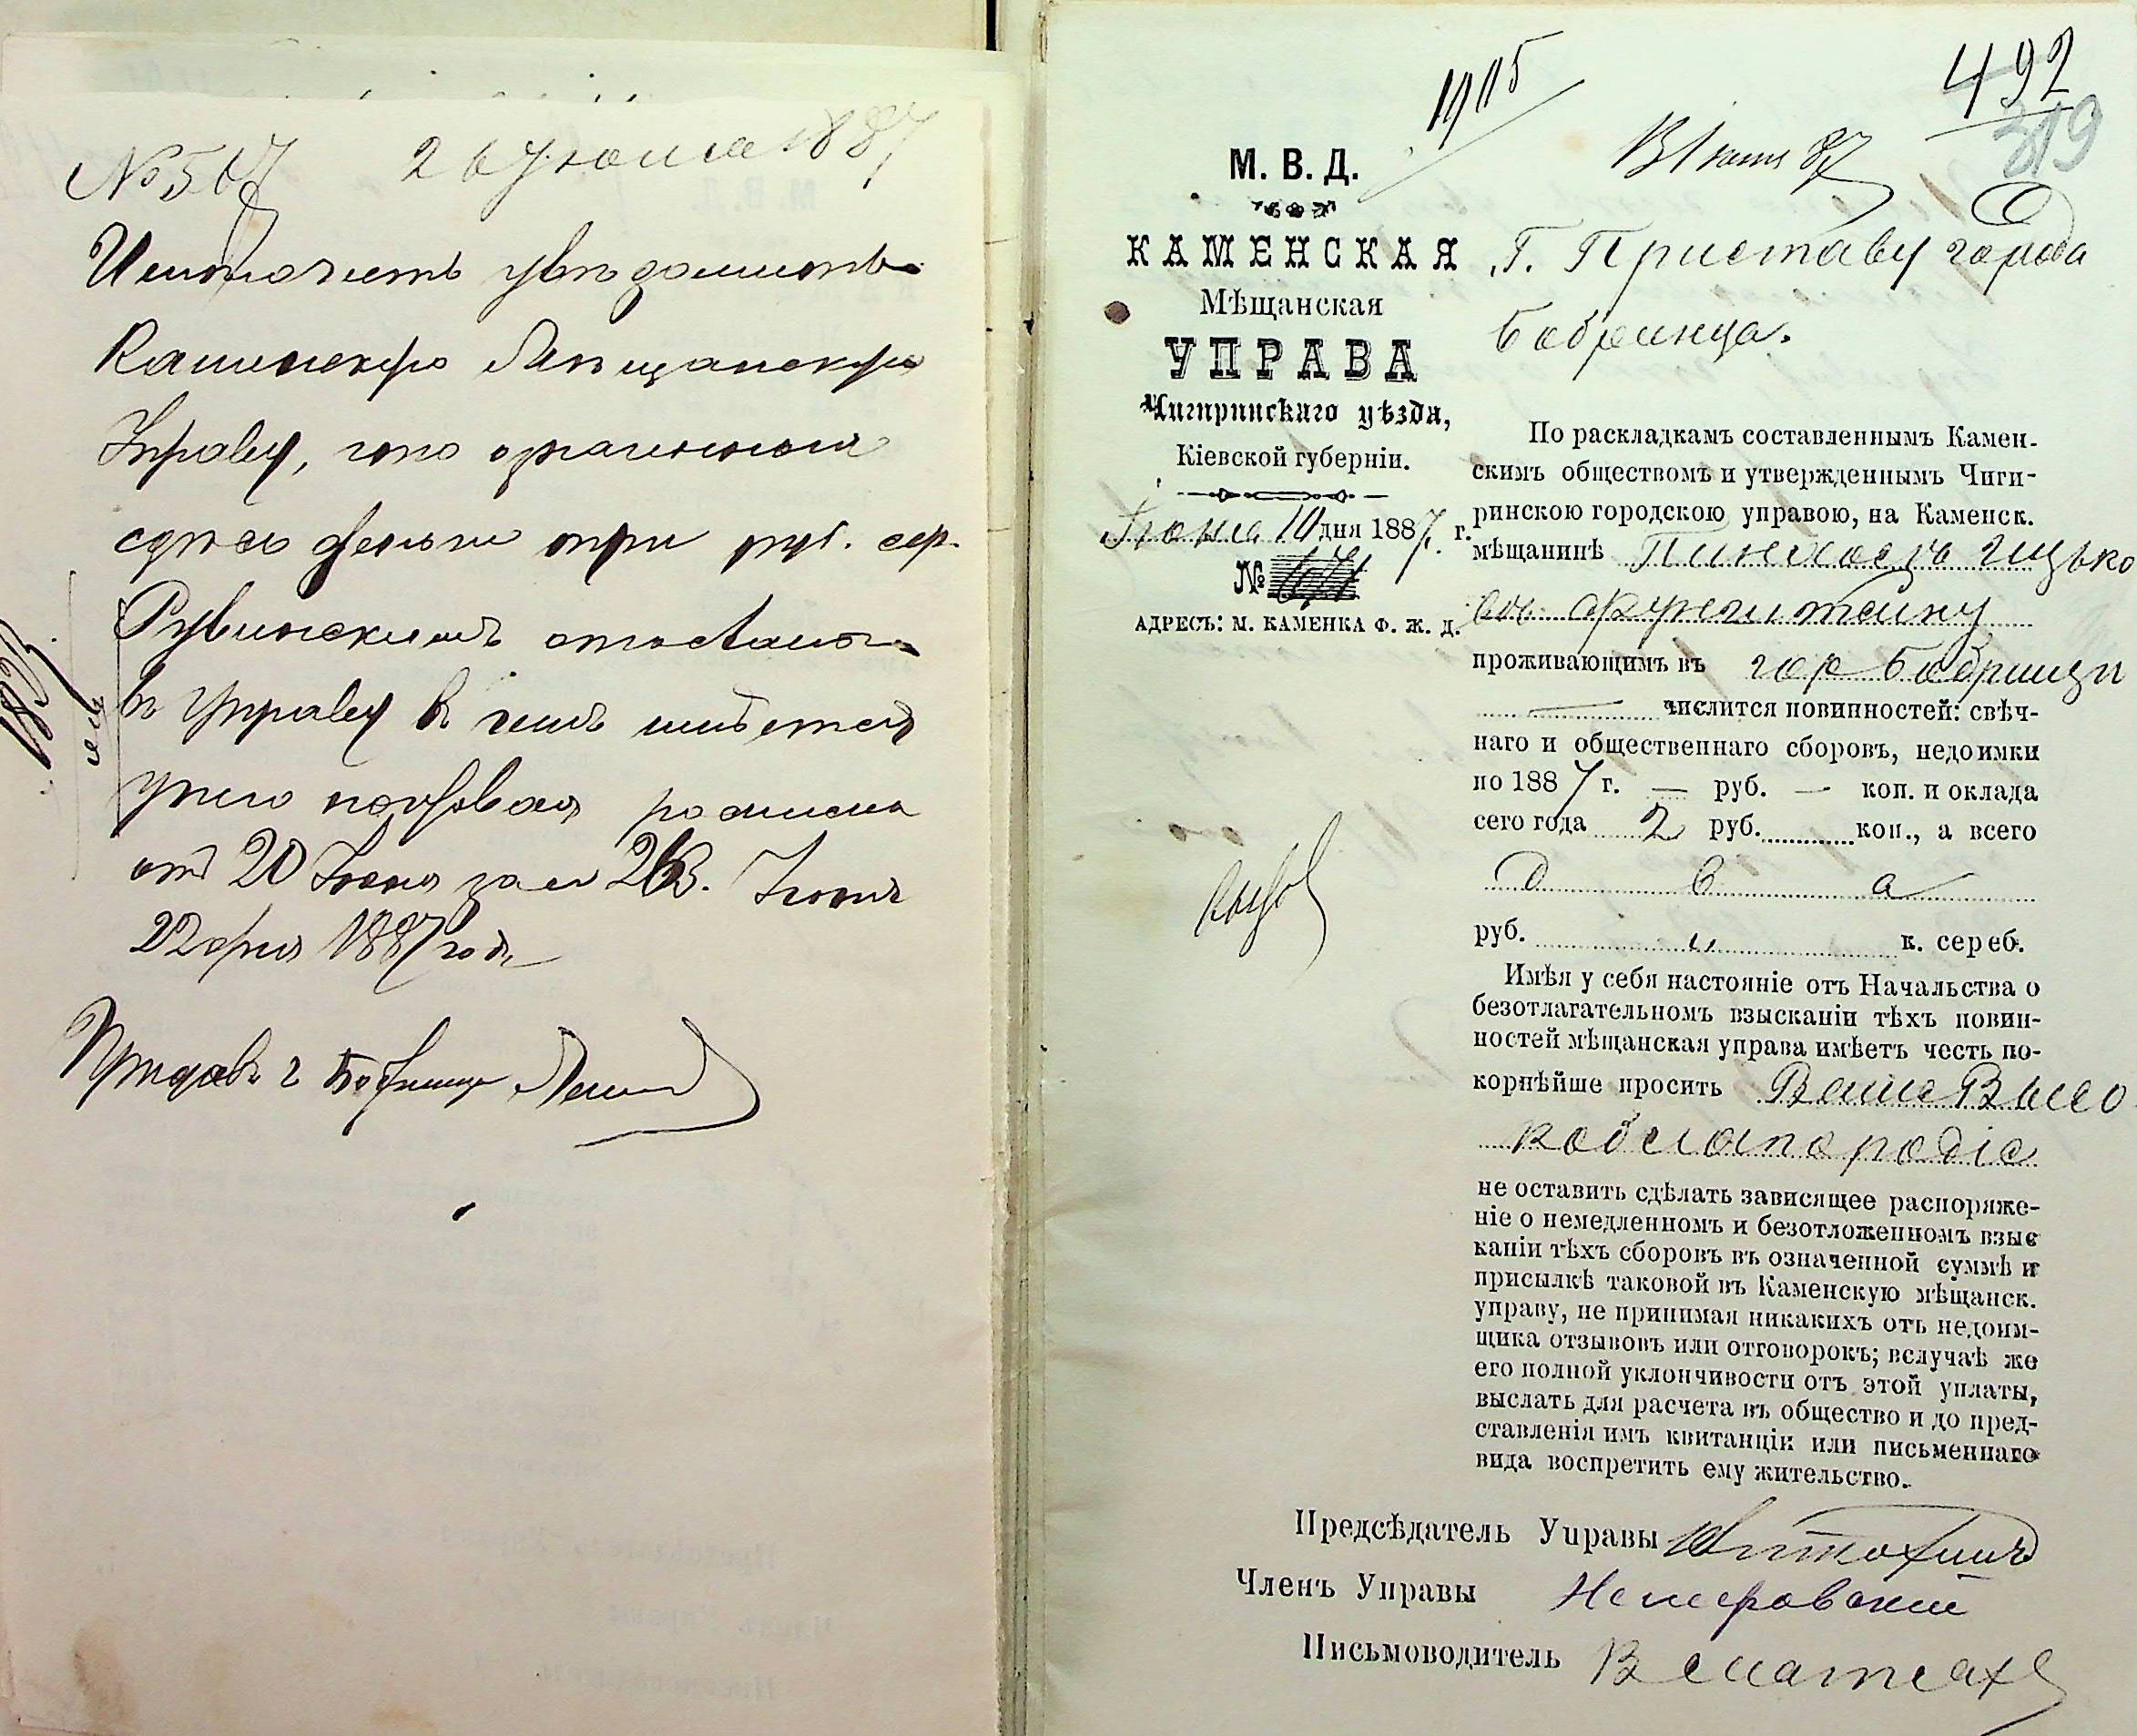 № 567 26 Июня 1887
Исполочесть увѣдомить
Каменскую Мѣщанскую
Управу, что
деньги три руб. сер.
Рувинскимъ
въ Управу в чемъ имѣется
у него почтовая росписка
отъ 20 Июня за № 263. Июня
22 дня 1887 года
Приставъ г Бобринца
492
319
1915
М. В. Д.
КАМЕНСКАЯ
Мѣщанская
УПРАВА
Чигиринскаго уѣзда,
Кіевской губерніи.
Іюня 10 дня 1887 г.
№ 671
АДРЕСЪ: М. КАМЕНКА Ф. Ж. Д.
Г. Приставу города
Бобринца.
По раскладкамъ составленнымъ Камен-
скимъ обществомъ и утвержденнымъ Чиги-
ринскою городскою управою, на Каменск.
мѣщанинѣ Пинхосъ Ицько
проживающимъ въ гор Бобринци
числится повинностей: свѣч-
наго и общественнаго сборовъ, недоимки
по 1887 г. — руб. — коп. и оклада
сего года 2 руб. коп., а всего
Два
руб. " к. сереб.
Имѣя у себя настояніе отъ Начальства о
безотлагательномъ взысканіи тѣхъ повин-
ностей мѣщанская управа имѣетъ честь по-
корнѣйше просить Ваше Высо
коблагородіе
не оставить сдѣлать зависящее распоряже-
ніе о немедленномъ и безотложенномъ взыс
каніи тѣхъ сборовъ въ означенной суммѣ и
присылкѣ таковой въ Каменскую мѣщанск.
управу, не принимая никакихъ отъ недоим-
щика отзывовъ или отговорокъ; вслучаѣ же
его полной уклончивости отъ этой уплаты,
выслать для расчета въ общество и до пред-
ставленія имъ квитанціи или письменнаго
вида воспретить ему жительство.
Предсѣдатель Управы
Членъ Управы Немеровскій
Письмоводитель